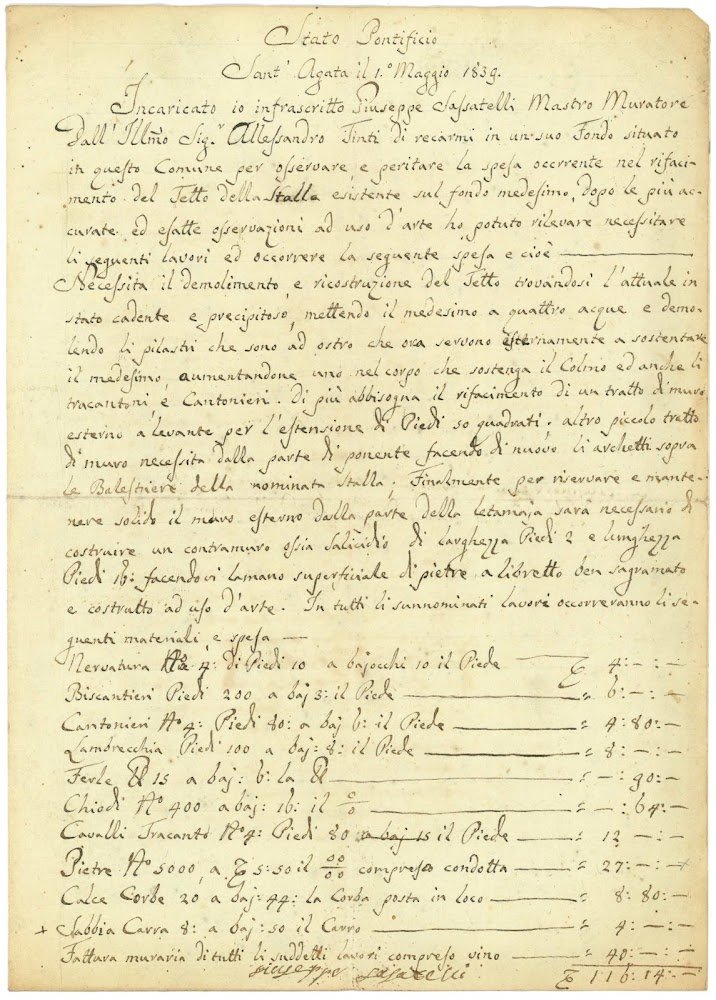 Stato Pontificio
Sant' Agata il 1.º Maggio 1839.
Incaricato io infrascritto Giuseppe Sassatelli Mastro Muratore
Dall' Illmo Sig.r Allessandro Tinti di recarmi in un suo Fondo situato
in questo Comune per osservare e peritare la spesa occrrente nel rifaci-
mento del Tetto della Stalla esistente sul fondo medesimo, Dopo le più ac-
curate ed esatte osservazioni ad uso d'arte ho potuto rilevare necessitare
li seguenti lavori ed occorrere la seguente spesa e cioè
Necessita il demolimento e ricostruzione del Tetto trovandosi l'attuale in
stato cadente e precipitoso, mettendo il medesimo a quattro acque e demo-
lendo li pilastri che sono ad ostro che ora servono esternamente a sostentare
il medesimo, aumentandone uno nel corpo che sostenga il Colmo ed anche li
tracantoni e Cantonieri. Di più abbisogna il rifacimento di un tratto di muro
esterno a levante per l'estensione di Piedi 50 quadrati. altro piccolo tratto
di muro necessita dalla parte di ponente facendo di nuovo li archetti sopra
le Balestriere della nominata stalla; Finalmente per riservare e mante-
nere solido il muro esterno dalla parte della letamaja sarà necessario di
costruire un contramuro ossia Salicidio di larghezza Piedi 2 e lunghezza
Piedi 16: facendovi la mano superficiale di pietre a libretto ben sagramato
e costrutto ad uso d'arte. In tutti li sunnominati lavori occorreranno li se-
guenti materiali, e spesa —
Nervatura Nº 4: di Piedi 10 a bajocchi 10 il Piede 4:-:-
Biscantieri Piedi 200 a baj 3: il Piede = 6:-:-
Cantonieri Nº 4: Piedi 80: a baj 6: il Piede = 4:80:-
Lambrecchia Piedi 100 a baj: 8: il Piede = 8:-:-
Ferle 15 a baj: 6: la = -:90:-
Chiodi Nº 400 a baj: 16: il % = -:64:-
Cavalli Tracanto Nº 4: Piedi 80 a baj 15 il Piede = 12-:-
Pietre Nº 5000, a 5:50 il compreso condotta = 27:-:-
Calce Corbe 20 a baj: 44: la Corba posta in loco = 8:80:-
+ Sabbia Carra 8: a baj: 50 il Carro = 4:-:-
Fattura muraria di tutti li suddetti lavori compreso vino = 40:-:-
Giuseppe Sasatelli 116:14:-